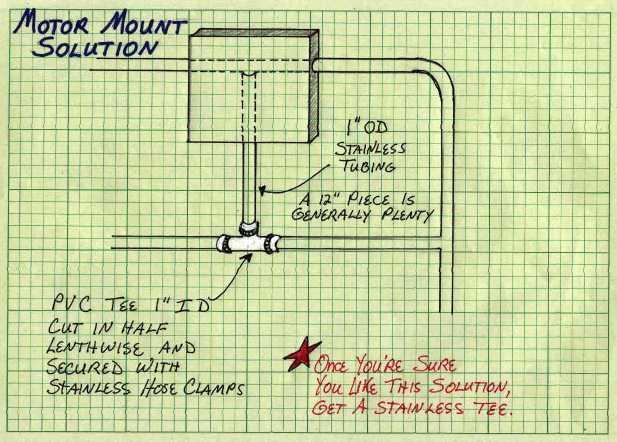 MOTOR MOUNT
SOLUTION
1" OD
STAINLESS
TUBING
A 12" PIECE IS
GENERALLY PLENTY
PVC TEE 1" ID
CUT IN HALF
LENTHWISE AND
SECURED WITH
STAINLESS HOSE CLAMPS
ONCE YOU'RE SURE
YOU LIKE THIS SOLUTION,
GET A STAINLESS TEE.